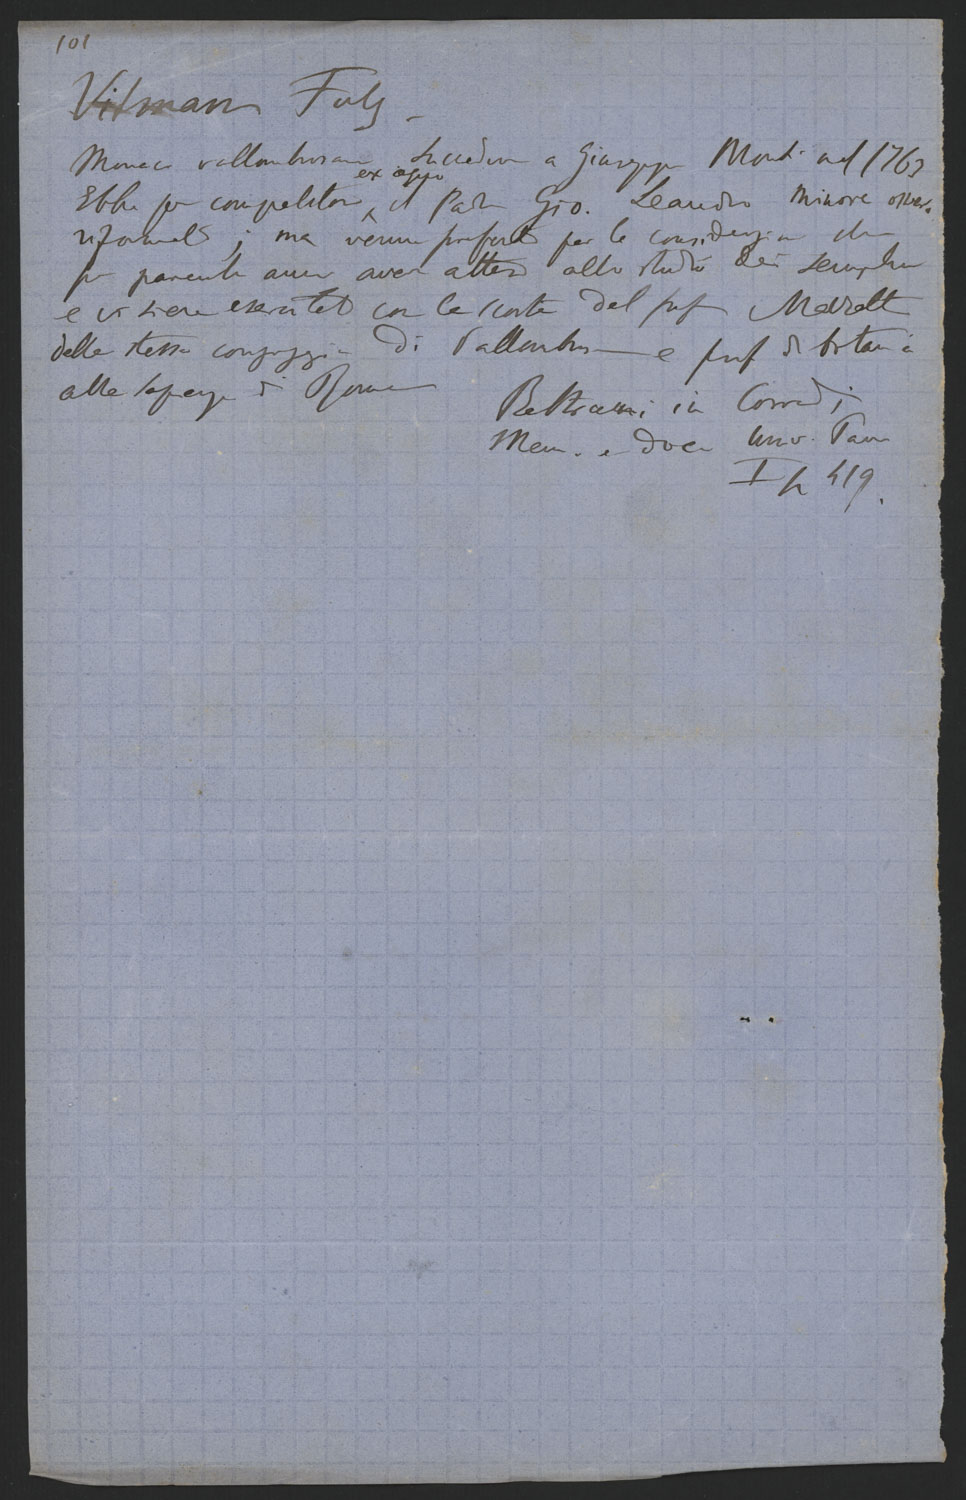 101
Vitmann Fulg.
Monaco vallombrosano successore a Giuseppe Monti nel 1763
ex aequo
Ebbe per competitore il Padre Gio. Leandro Minore osserv.
riformato; ma venne preferito per la considerazione che
per parecchi anni aver atteso allo studio dei semplici
e vi siera esercitato con la scorta del prof Maratti
della stessa congregazione di Vallombrosa e prof di botanica
alla Sapienza di Roma
Beltrami in Corradi
Mem. e doc. Univ. Pavia
I p 419.